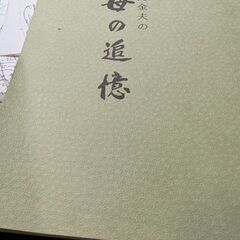 金夫の
母の追憶